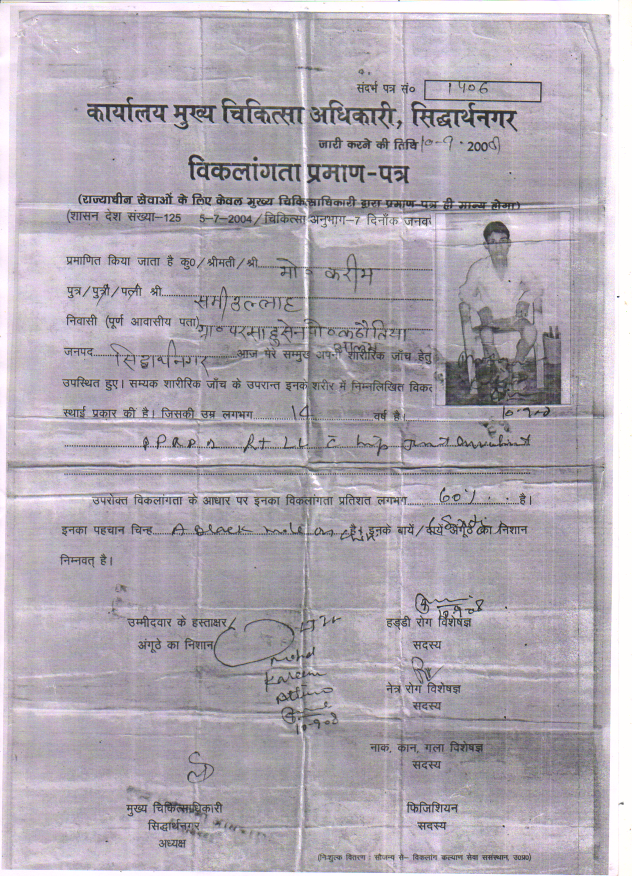 संदर्भ पत्र सं० 1406
कार्यालय मुख्य चिकित्सा अधिकारी, सिद्धार्थनगर
जारी करने की तिथि 10-9-2008
विकलांगता प्रमाण-पत्र
(राज्याधीन सेवाओं के लिए केवल मुख्य चिकित्साधिकारी द्वारा प्रमाण-पत्र ही मान्य होगा)
(शासन देश संख्या-125 5-7-2004/चिकित्सा अनुभाग-7 दिनाँक जनव
प्रमाणित किया जाता है कु०/श्रीमती/श्री मो० करीम
पुत्र/पुत्री/पत्नी श्री समीउल्लाह
निवासी (पूर्ण आवासीय पता) ग्रा० परसा हुसेन पो० कठौतिया
आलम
जनपद सिद्धार्थनगर आज मेरे सम्मुख अपनी शारीरिक जाँच हेतु
उपस्थित हुए। सम्यक शारीरिक जाँच के उपरान्त इनके शरीर में निम्नलिखित विकल
स्थाई प्रकार की है। जिसकी उम्र लगभग 14 वर्ष है।
10-9-08
PPRP Rt LL Hip Joint
उपरोक्त विकलांगता के आधार पर इनका विकलांगता प्रतिशत लगभग 60% है।
इनका पहचान चिन्ह A Black mole on chin है। इनके बायें/दायें अंगूठे का निशान
निम्नवत् है।
10-9-08
उम्मीदवार के हस्ताक्षर/
हड्डी रोग विशेषज्ञ
अंगूठे का निशान
सदस्य
Mohd
Kareem
Attino
10-9-08
नेत्र रोग विशेषज्ञ
सदस्य
नाक, कान, गला विशेषज्ञ
सदस्य
मुख्य चिकित्साधिकारी
फिजिशियन
सिद्धार्थनगर
सदस्य
अध्यक्ष
(निःशुल्क वितरण : सौजन्य से- विकलांग कल्याण सेवा संसस्थान, उ0प्र0)